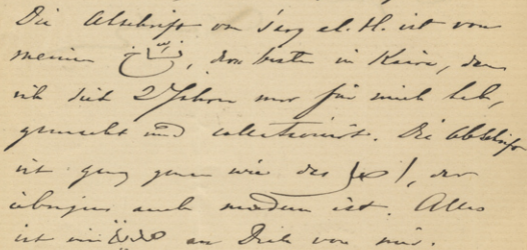 Die Abschrift von Sarg el. H. ist von
meinem نسّاخ, dem besten in Kairo, den
ich seit 2 Jahren nur für mich hab,
gemacht und collationirt. Die Abschrift
ist ganz genau wie das اصل, das
übrigens auch modern ist. Alles
ist in an Dich von mir